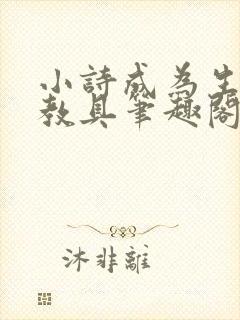 小詩成為生
教具筆趣閣
沐非離